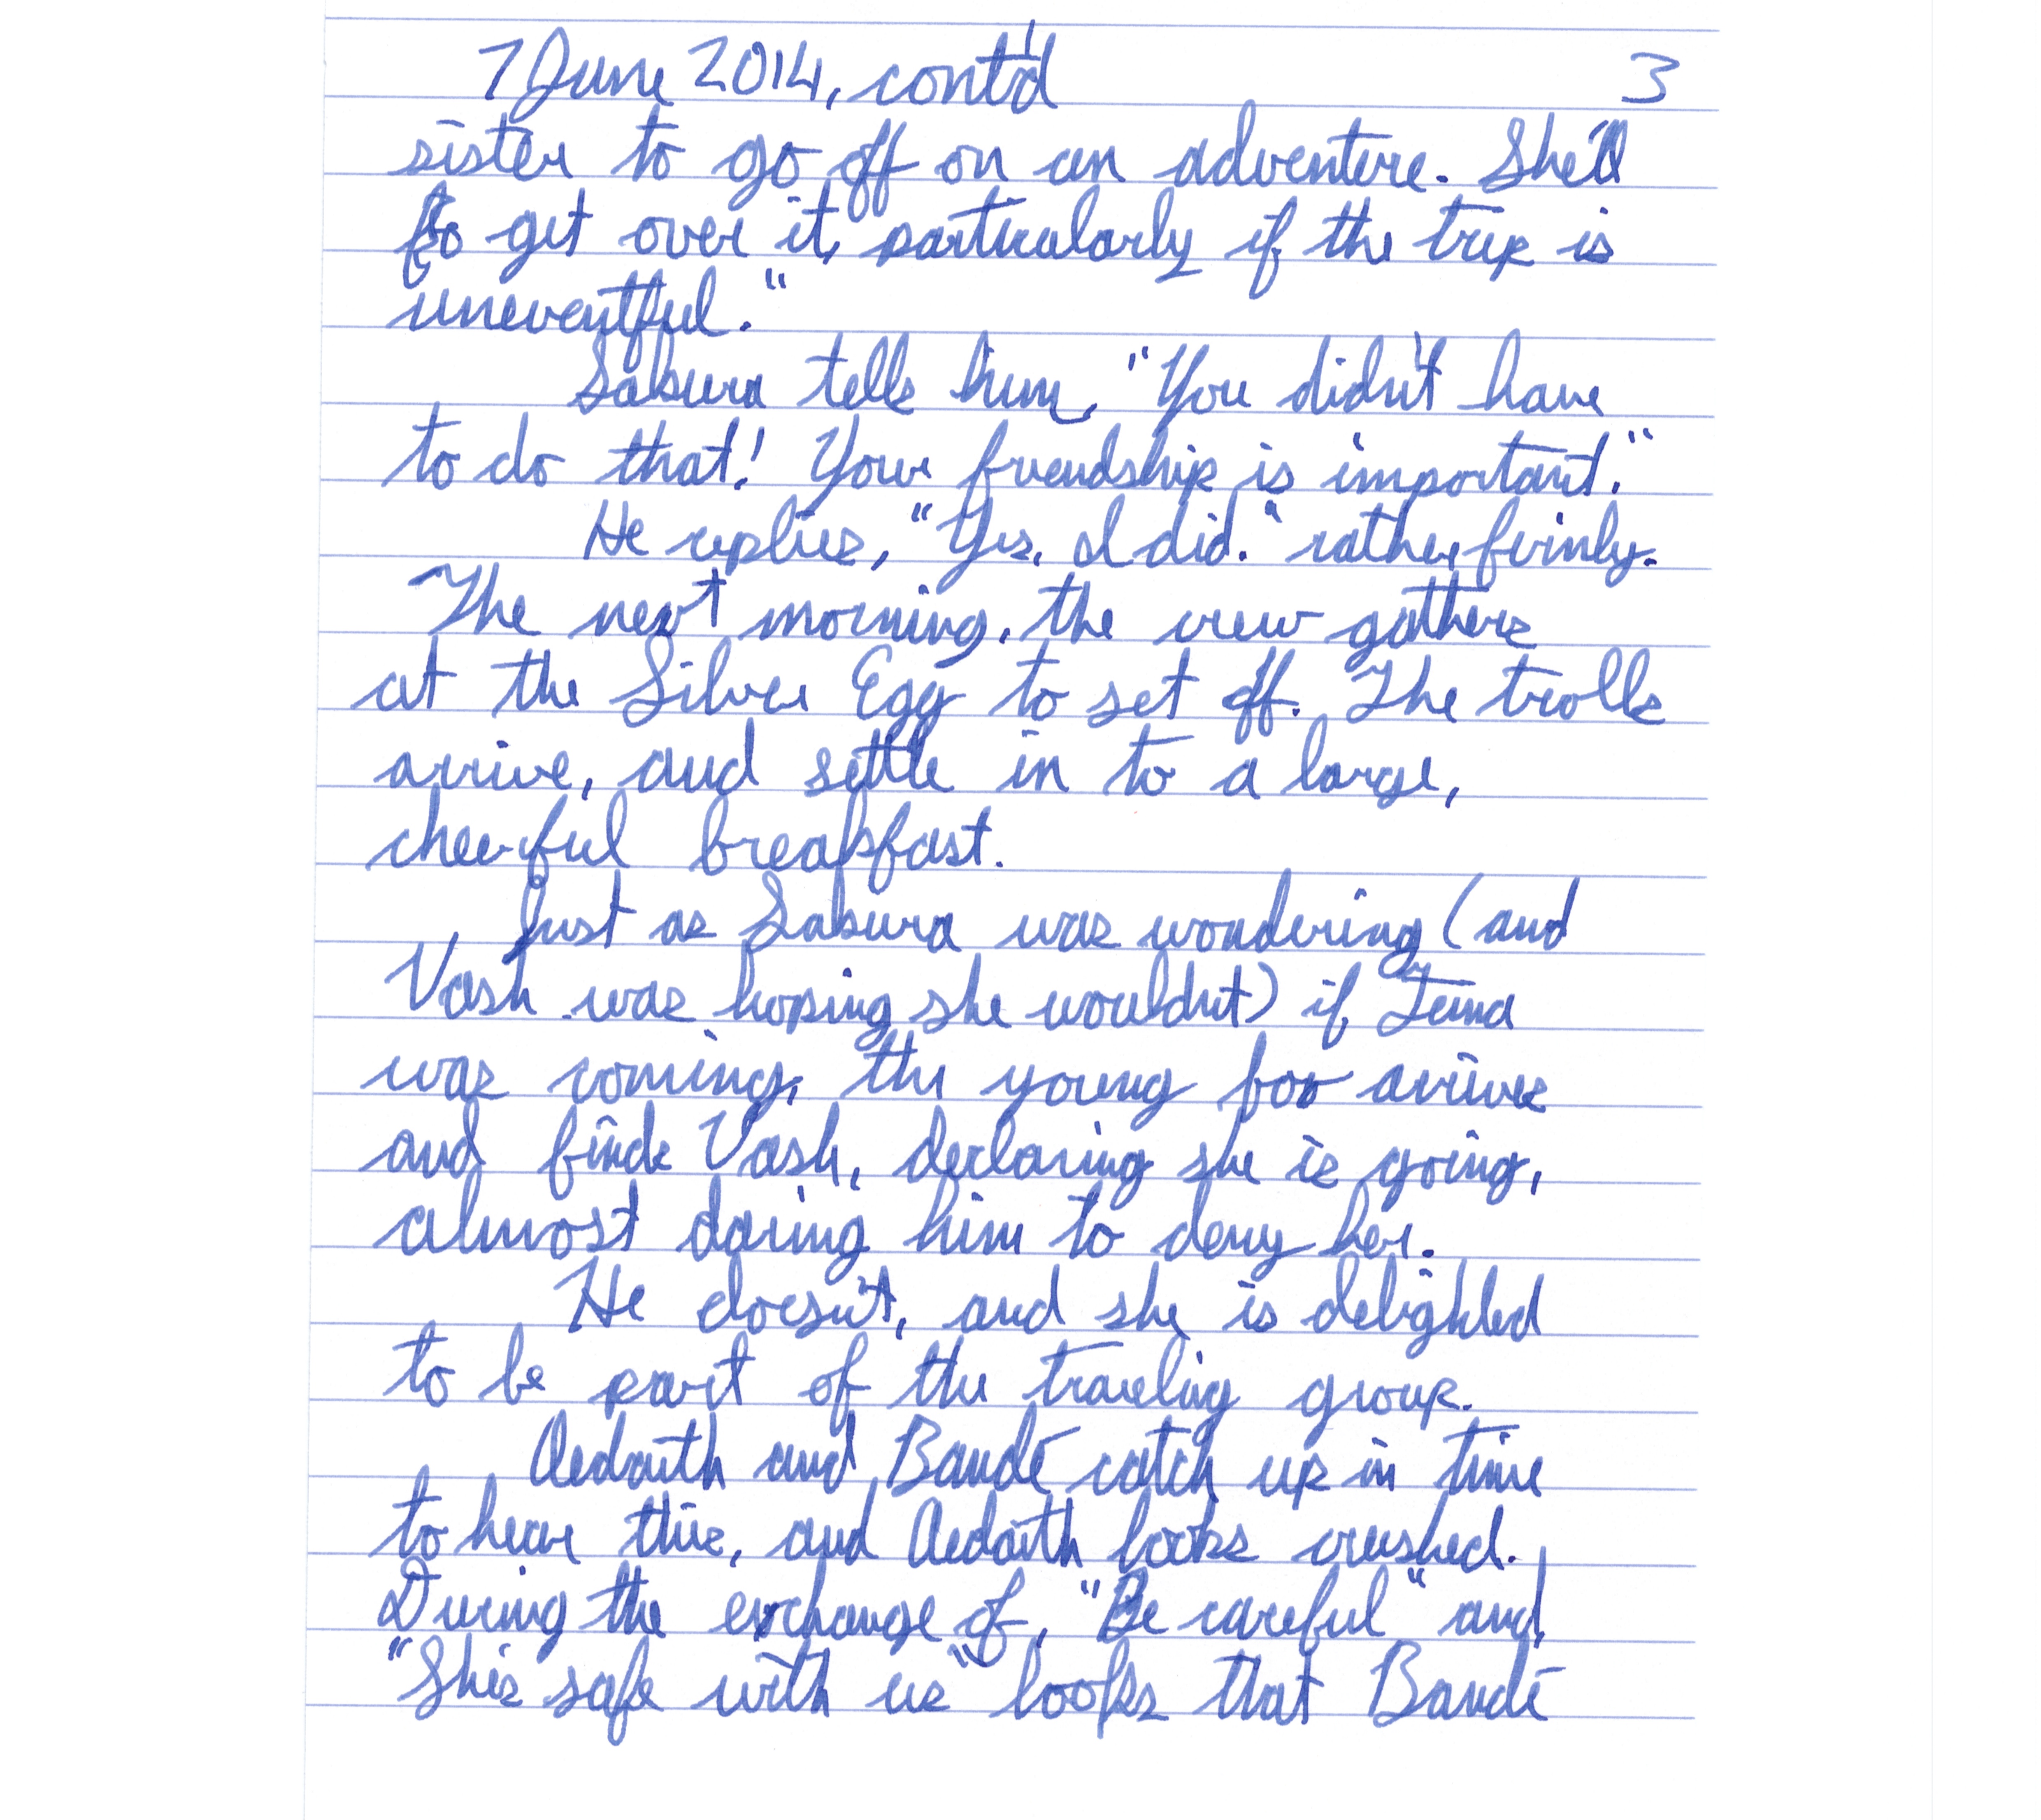 7 June 2014, cont'd 3
sister to go off on an adventure. She'll
get over it, particularly if the trip is
uneventful."
Sakura tells him, "You didn't have
to do that! Your friendship is important."
He replies, "Yes, I did." rather firmly.
The next morning, the crew gathers
at the Silver Egg to set off. The trolls
arrive, and settle in to a large,
cheerful breakfast.
Just as Sakura was wondering (and
Vash was hoping she wouldn't) if
was coming, the young fox arrives
and finds Vash, declaring she is going,
almost daring him to deny her.
He doesn't, and she is delighted
to be part of the traveling group.
Aedaith and Bandé catch up in time
to hear this, and Aedaith looks crushed.
During the exchange of, "Be careful" and
"She's safe with us" looks that Bandé